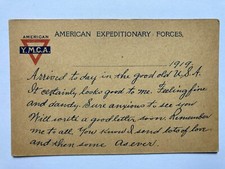 AMERICAN
Y.M.C.A.
AMERICAN EXPEDITIONARY FORCES.
1919
Arrived to day in the good old U.S.A.
It certainly looks good to me. Feeling fine
and dandy. Sure anxious to see you
Will write a good letter soon. Remember
me to all. You know I send lots of love
and then some As ever.